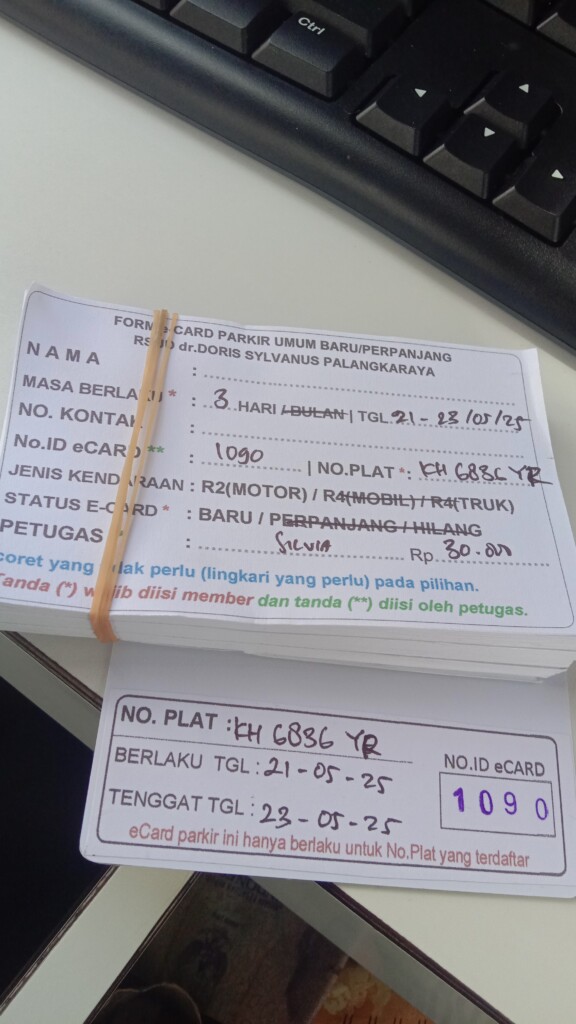 Ctrl
FORM e-CARD PARKIR UMUM BARU/PERPANJANG
RSUD dr.DORIS SYLVANUS PALANGKARAYA
NAMA :
MASA BERLAKU * : 3 HARI / BULAN | TGL. 21 - 23 /05/25
NO. KONTAK :
No.ID eCARD ** : 1090 | NO.PLAT *: KH 6836 YR
JENIS KENDARAAN : R2(MOTOR) / R4(MOBIL) / R4(TRUK)
STATUS E-CARD * : BARU / PERPANJANG / HILANG
PETUGAS : SILVIA Rp. 30.000
coret yang tidak perlu (lingkari yang perlu) pada pilihan.
Tanda (*) wajib diisi member dan tanda (**) diisi oleh petugas.
NO. PLAT : KH 6836 YR
BERLAKU TGL : 21 - 05 - 25
TENGGAT TGL : 23 - 05 - 25
NO.ID eCARD
1090
eCard parkir ini hanya berlaku untuk No.Plat yang terdaftar